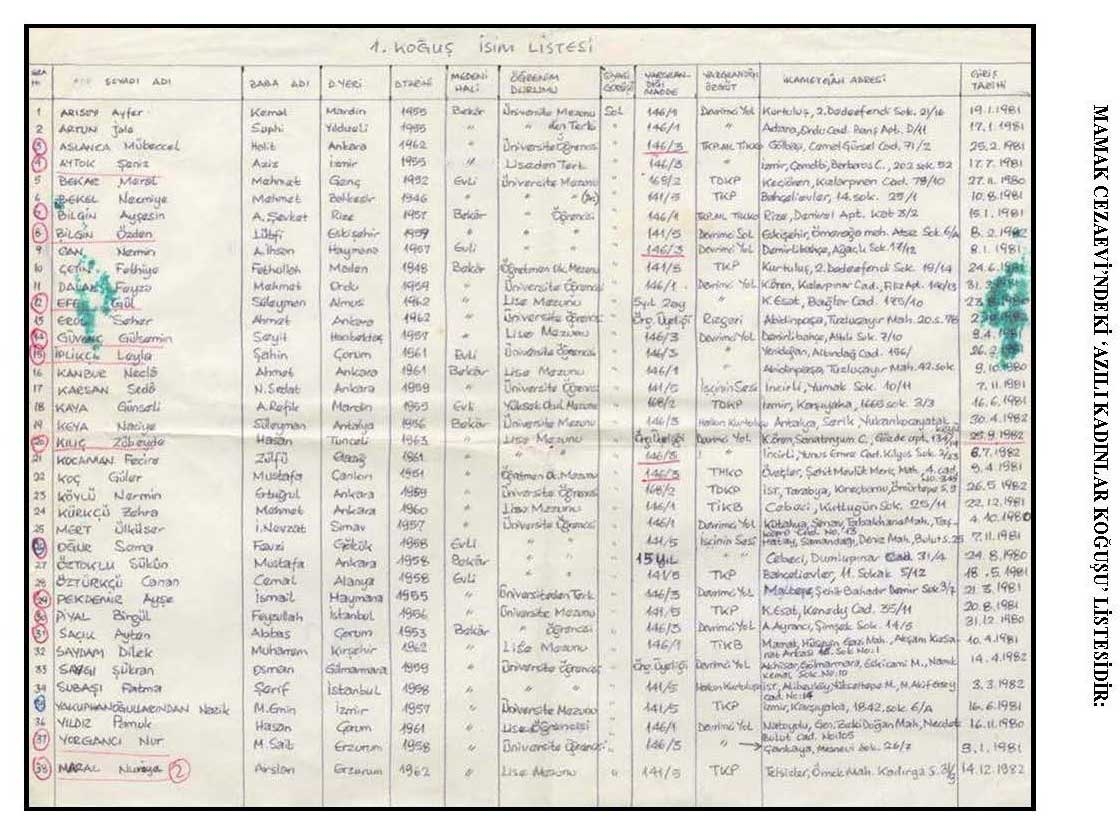 1. KOĞUŞ İSİM LİSTESİ
SIRA ADI SOYADI ADI BABA ADI D.YERİ D.TARİHİ MEDENİ HALİ ÖĞRENİM DURUMU SİYASİ GÖRÜŞÜ YARGILANDIĞI MADDE YARGILANDIĞI ÖRGÜT İKAMETGAH ADRESİ GİRİŞ TARİHİ
1 ARISOY Ayfer Kemal Mardin 1955 Bekâr Üniversite Mezunu Sol 146/1 Devrimci Yol Kurtuluş, 2. Dadeefendi Sok. 21/16 19.1.1981
2 ARTUN Jale Suphi Yıldızeli 1955 " " den Terk " 146/1 " Adana, Ordu Cad. Barış Apt. D/11 17.1.1981
3 ASLANCA Mübeccel Halit Ankara 1962 " Üniversite Öğrencisi " 146/3 TKP.ML Tikko Gölbaşı, Cemal Gürsel Cad. 71/2 25.2.1981
4 AYTOK Şeniz Aziz İzmir 1955 " Liseden Terk " 146/3 " İzmir, Çamdibi, Berberos C., 202 sok. 52 17.7.1981
5 BEKAR Meral Mehmet Genç 1952 Evli Üniversite Mezunu " 168/2 TDKP Keçiören, Kalarpınen Cad. 78/10 27.11.1980
6 BEKEL Necmiye Mehmet Balıkesir 1946 " " " " 141/5 TKP Bahçelievler, 14. sok. 25/1 10.8.1981
7 BİLGİN Ayşesin A. Şevket Rize 1957 Bekâr " Öğrencisi " 146/1 TKP.ML TİKKO Rize, Demirel Apt. Kat 3/2 15.1.1981
8 BİLGİN Özden Lütfi Eskişehir 1959 " " " " 141/5 Devrimci Sol Eskişehir, Ömerağa mah. Atses Sok. 6/A 8.2.1982
9 CAN Nermin A. İhsan Haymana 1957 Evli " " " 146/3 Devrimci Yol Demirlibahçe, Ağaçlı Sok. 17/12 8.1.1981
10 ÇETİN Fethiye Fethullah Maden 1948 Bekâr Öğretmen Ok. Mezunu " 141/5 TKP Kurtuluş, 2. Dadeefendi Sok. 19/14 24.6.1981
11 Feyza Mehmet Ordu 1959 " Üniversite Öğrenci " 146/1 Devrimci Yol K.Ören, Kalarpınar Cad. Filiz Apt. 140/13 31.
12 EFE Gül Süleyman Almus 1962 " Lise Mezunu " 5yıl 2ay " K.Esat, Bağlar Cad. 175/10 23.
13 EROL Seher Ahmet Ankara 1962 " Üniversite Öğrenci " Örg. Üyeliği Rızgari Abidinpaşa, Tuzluçayır Mah. 20.s. 78
14 GÜVENÇ Gülsemin Seyit Hacıbektaş 1957 " Lise Mezunu " 146/3 Devrimci Yol Demirlibahçe, Atılı Sok. 7/10 9.4.1981
15 İPLİKÇİ Leyla Şahin Çorum 1961 Evli Üniversite Öğrenci " 146/3 " Yenidoğan, Altındağ Cad. 196/ 26.2.1981
16 KANBUR Neclâ Ahmet Ankara 1961 Bekâr Lise Mezunu " 146/1 " Abidinpaşa, Tuzluçayır Mah. 42. sok. 9.10.1980
17 KARSAN Sedâ N. Sedat Ankara 1959 " Üniversite Öğrenci " 141/5 İşçinin Sesi İncirli, Yumak Sok. 10/11 7.11.1981
18 KAYA Günseli A. Refik Mardin 1955 Evli Yüksek Okul Mezunu " 168/2 TDKP İzmir, Karşıyaka, 1668 sok. 3/3 16.6.1981
19 KEYA Naciye Süleyman Antalya 1956 Bekâr Üniversite Mezunu " 146/3 Halkın Kurtuluşu Antalya, Serik, Yukarıkocayatak köyü 30.4.1982
20 KILIÇ Zübeyde Hasan Tunceli 1963 " Lise Mezunu " Örg. Üyeliği Devrimci Yol K.Ören, Sanatoryum C., Gözde apt. 134/ 25.9.1982
21 KOCAMAN Fecire Zülfü Elazığ 1961 " " " 146/3 " İncirli, Yunus Emre Cad. Kilyos Sok. 2/23 6.7.1982
22 KOÇ Güler Mustafa Çankırı 1951 " Öğretmen Ok. Mezunu " 146/3 THKO Öveçler, Şehit Mevlüt Meriç Mah. 4. cad. No: 345 9.4.1981
23 KÖYLÜ Nermin Ertuğrul Ankara 1959 " Üniversite Öğrenci " 168/2 TDKP İst, Tarabya, Kireçburnu, Ömürtepe S. 9 26.5.1982
24 KÜRKÇÜ Zehra Mehmet Ankara 1960 " Lise Mezunu " 146/1 TİKB Cebeci, Kutlugün Sok. 25/11 22.12.1981
25 MERT Ülküser İ. Nevzat Simav 1957 " Üniversite Öğrenci " 146/1 Devrimci Yol Kütahya, Şenay, Tabakhane Mah., Taşköprü Cad. No: 13 4.10.1980
OĞUR Sema Fevzi Gölük 1958 Evli " " " 141/5 İşçinin Sesi Hatay, Samandağı, Deniz Mah. Bulut S. 25 7.11.1981
27 ÖZTOKLU Sükûn Mustafa Ankara 1958 Bekâr " " " 15 YIL Cebeci, Dumlupınar Cad. 31/4 24.8.1980
28 ÖZTÜRKÇÜ Canan Cemal Alanya 1958 Evli " " " 141/5 TKP Bahçelievler, 11. Sokak 5/12 18.5.1981
29 PEKDEMİR Ayşe İsmail Haymana 1955 " Üniversiteden Terk " 146/3 Devrimci Yol Maltepe, Şehit Bahadır Demir Sok. 3/7 21.3.1981
30 PİYAL Birgül Feyzullah İstanbul 1956 " Üniversite Mezunu " 141/5 TKP K.Esat, Kenedy Cad. 35/11 20.8.1981
31 SAÇIK Ayten Abbas Çorum 1953 Bekâr " Öğrencisi " 146/3 Devrimci Yol A. Ayrancı, Şimşek Sok. 14/5 31.12.1980
32 SAYDAM Dilek Muharrem Kırşehir 1962 " Lise Mezunu " 146/1 TİKB Mamak, Hüseyin Gazi Mah., Akşam Kasanat Arkası 18. sok No:1 10.4.1981
33 SAYGI Şükran Osman Gölmarmara 1959 " Üniversite Öğrenci " Örg. Üyeliği Devrimci Yol Akhisar, Gölmarmara, Eskicami M., Namık Kemal Sok. No: 10 14.4.1982
34 SUBAŞI Fatma Şerif İstanbul 1958 " " " 141/5 Halkın Kurtuluşu İst, Alibeyköy, Yükseltepe M., M. Akif Ersoy cad. No: 14 3.3.1982
YAKUPHANOĞULLARINDAN Nazik M. Emin İzmir 1957 " Üniversite Mezunu " 141/5 TKP İzmir, Karşıyaka, 1842. sok. 6/A 16.6.1981
36 YILDIZ Pamuk Hasan Çorum 1961 " Lise Öğrencisi " 146/1 Devrimci Yol Natoyolu, Gen. Zeki Doğan Mah., Necdet Bulut cad. No: 105 16.11.1980
37 YORGANCI Nur M. Sait Erzurum 1958 " Üniversite Öğrenci " 146/3 " Çankaya, Mesnevi Sok. 26/7 3.1.1981
38 MARAL Nuriye 2 Arslan Erzurum 1962 " Lise Mezunu " 141/5 TKP Telsizler, Örnek Mah. Kadırga S. 3/9 14.12.1982
MAMAK CEZAEVİ'NDEKİ 'AZILI KADINLAR KOĞUŞU' LİSTESİDİR: